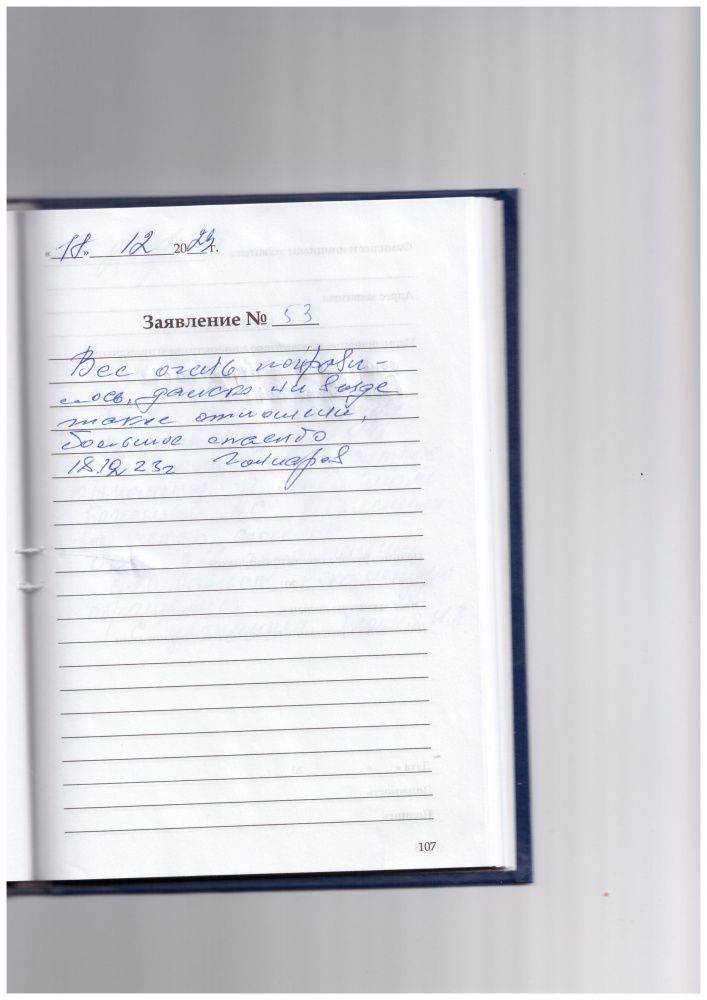 «18» 12 2023 г.
Заявление № 53
Все очень понрави-
лось, далеко ни везде
такие отношении,
большое спасибо
18.12.23г Гончаров
107